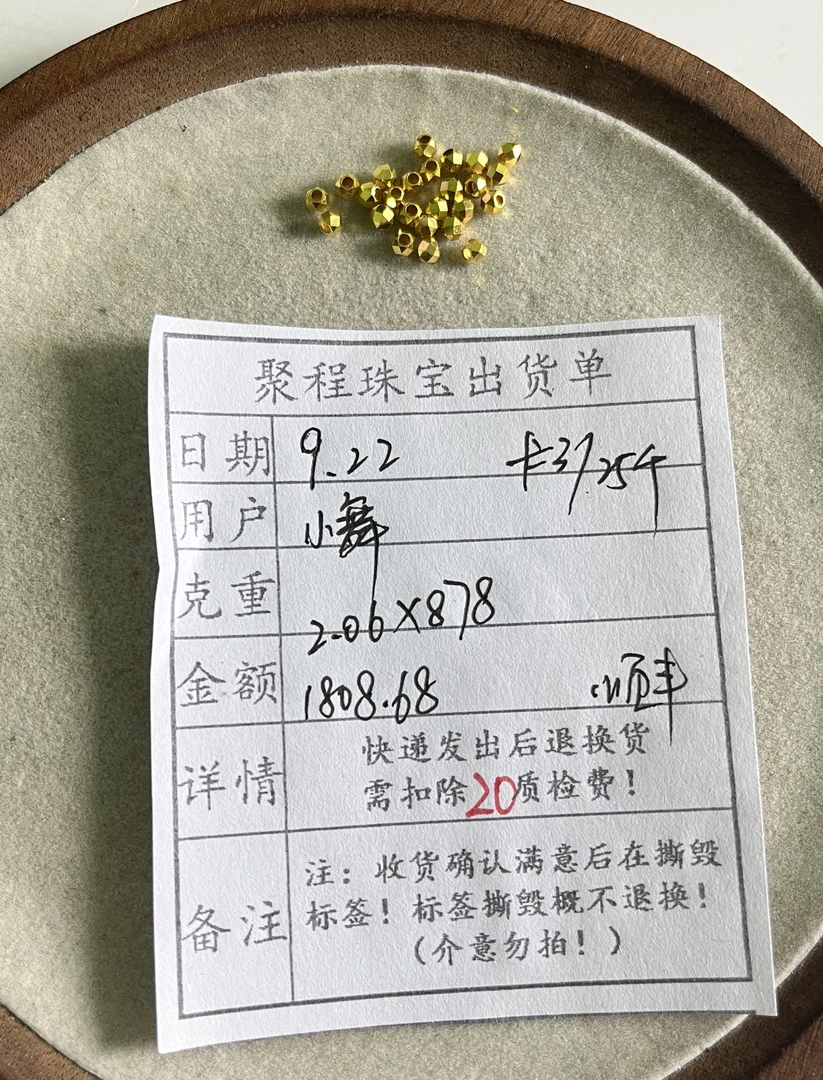 聚程珠宝出货单
日期 9.22 卡37.25千
用户 小舞
克重 2.06×878
金额 1808.68 顺丰
详情 快递发出后退换货
需扣除20质检费！
备注 注：收货确认满意后在撕毁
标签！标签撕毁概不退换！
（介意勿拍！）